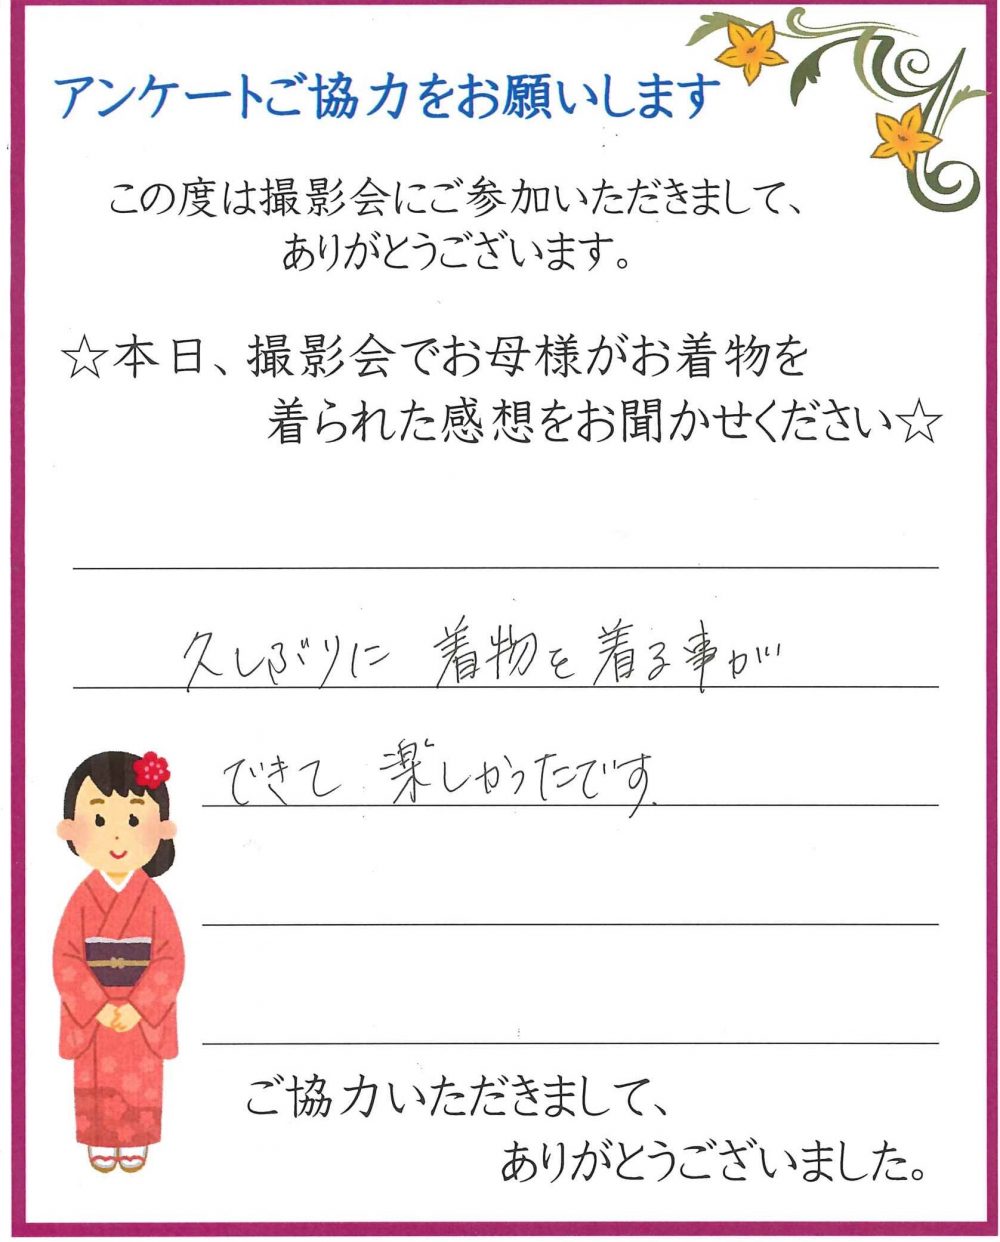 アンケートご協力をお願いします
この度は撮影会にご参加いただきまして、
ありがとうございます。
☆本日、撮影会でお母様がお着物を
着られた感想をお聞かせください☆
久しぶりに 着物を着る事が
できて 楽しかったです.
ご協力いただきまして、
ありがとうございました。